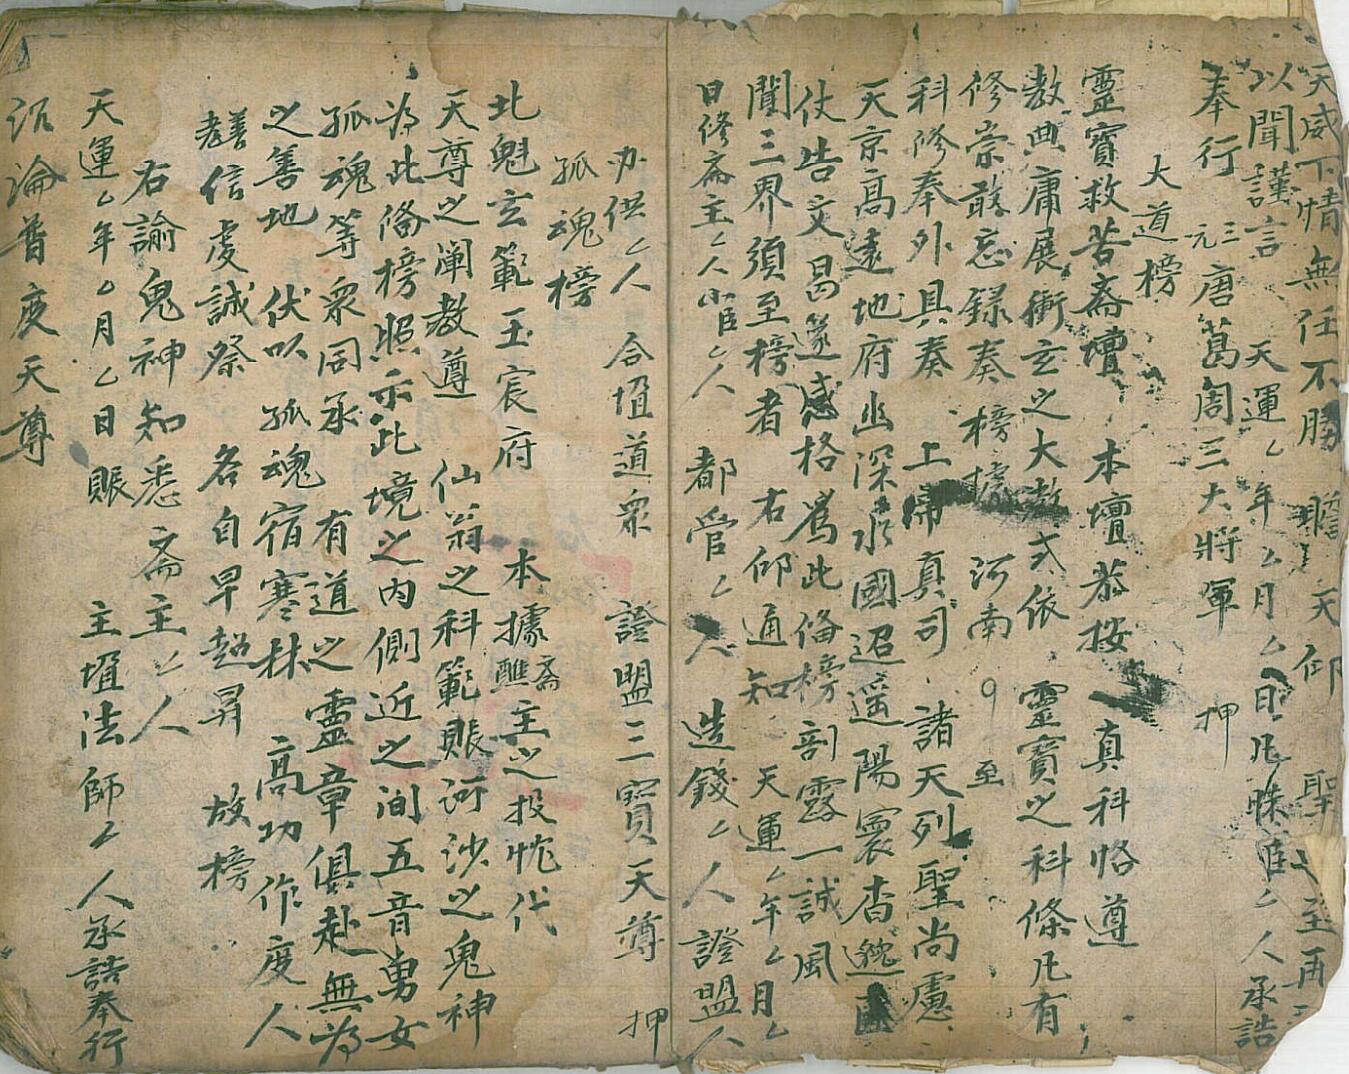 天威下情無任不勝 瞻天仰 聖 之至再
以聞謹言 天運厶年厶月厶日凡昧臣厶人承誥
奉行 三元唐葛周三大將軍 押
大道榜
靈寶救苦斋壇 本壇恭按 真科恪尊
教典庸展衝玄之大教式依 靈寶之科條凡有
修崇敢忘録奏榜據 河南 至
科修奉外具奏 上帝真司 諸天列聖尚慮
天京高遠地府幽深水國迢遥陽寰杳邈
仗告文曷遂感格爲此備榜剖露一誠風
聞三界須至榜者 右仰通知 天運厶年厶月厶
日修斋主厶人 厶人 都管厶人 造錢厶人 證盟人
办供厶人 合壇道衆 證盟三寶天尊 押
孤魂榜
北魁玄範玉宸府 本據斋醮主之投忱代
天尊之阐教遵 仙翁之科範賑河沙之鬼神
为此備榜照示此境之内側近之间五音男女
孤魂等衆同承 有道之靈章俱赴無为
之善地 伏以孤魂宿寒林 高功作度人
善孝信虔誠祭 各自早超昇 故榜
右諭鬼神知悉 斋主厶人
天運厶年厶月厶日賑 主壇法師厶人承誥奉行
沉淪普度天尊